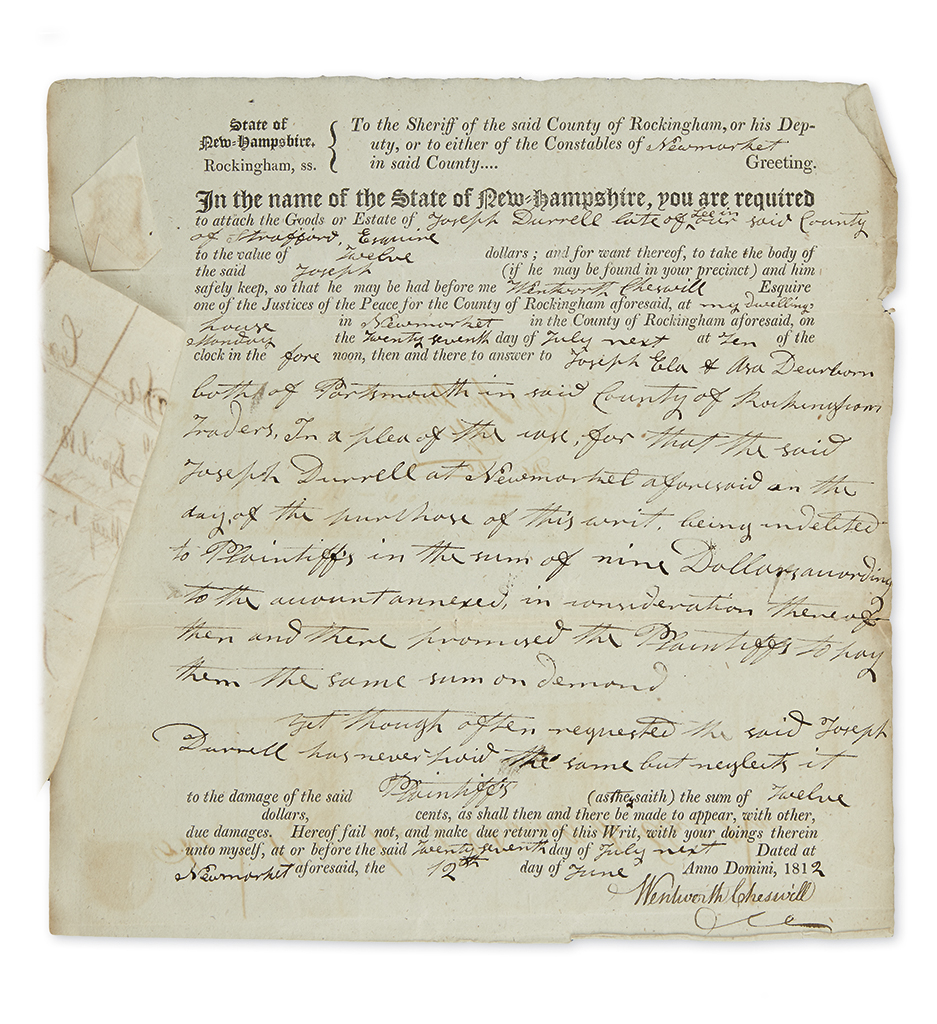 State of
New-Hampshire.
Rockingham, ss.
To the Sheriff of the said County of Rockingham, or his Dep-
uty, or to either of the Constables of Newmarket
in said County.... Greeting.
In the name of the State of New-Hampshire, you are required
to attach the Goods or Estate of Joseph Durrell late of Lee in said County
of Strafford Esquire
to the value of Twelve dollars; and for want thereof, to take the body of
the said Joseph (if he may be found in your precinct) and him
safely keep, so that he may be had before me Wentworth Cheswill Esquire
one of the Justices of the Peace for the County of Rockingham aforesaid, at my dwelling
house in Newmarket in the County of Rockingham aforesaid, on
Monday the Twenty seventh day of July next at Ten of the
clock in the fore noon, then and there to answer to Joseph Ela & Asa Dearborn
both of Portsmouth in said County of Rockingham
Traders, In a plea of the case, for that the said
Joseph Durrell at Newmarket aforesaid on the
day of the purchase of this writ, being indebted
to Plaintiffs in the sum of nine Dollars according
to the account annexed, in consideration thereof
then and there promised the Plaintiffs to pay
them the same sum on demand
Yet though often requested the said Joseph
Durrell has never paid the same but neglects it
to the damage of the said Plaintiffs (as they saith) the sum of Twelve
dollars, cents, as shall then and there be made to appear, with other,
due damages. Hereof fail not, and make due return of this Writ, with your doings therein
unto myself, at or before the said Twenty seventh day of July next Dated at
Newmarket aforesaid, the 12th day of June Anno Domini, 1812
Wentworth Cheswill